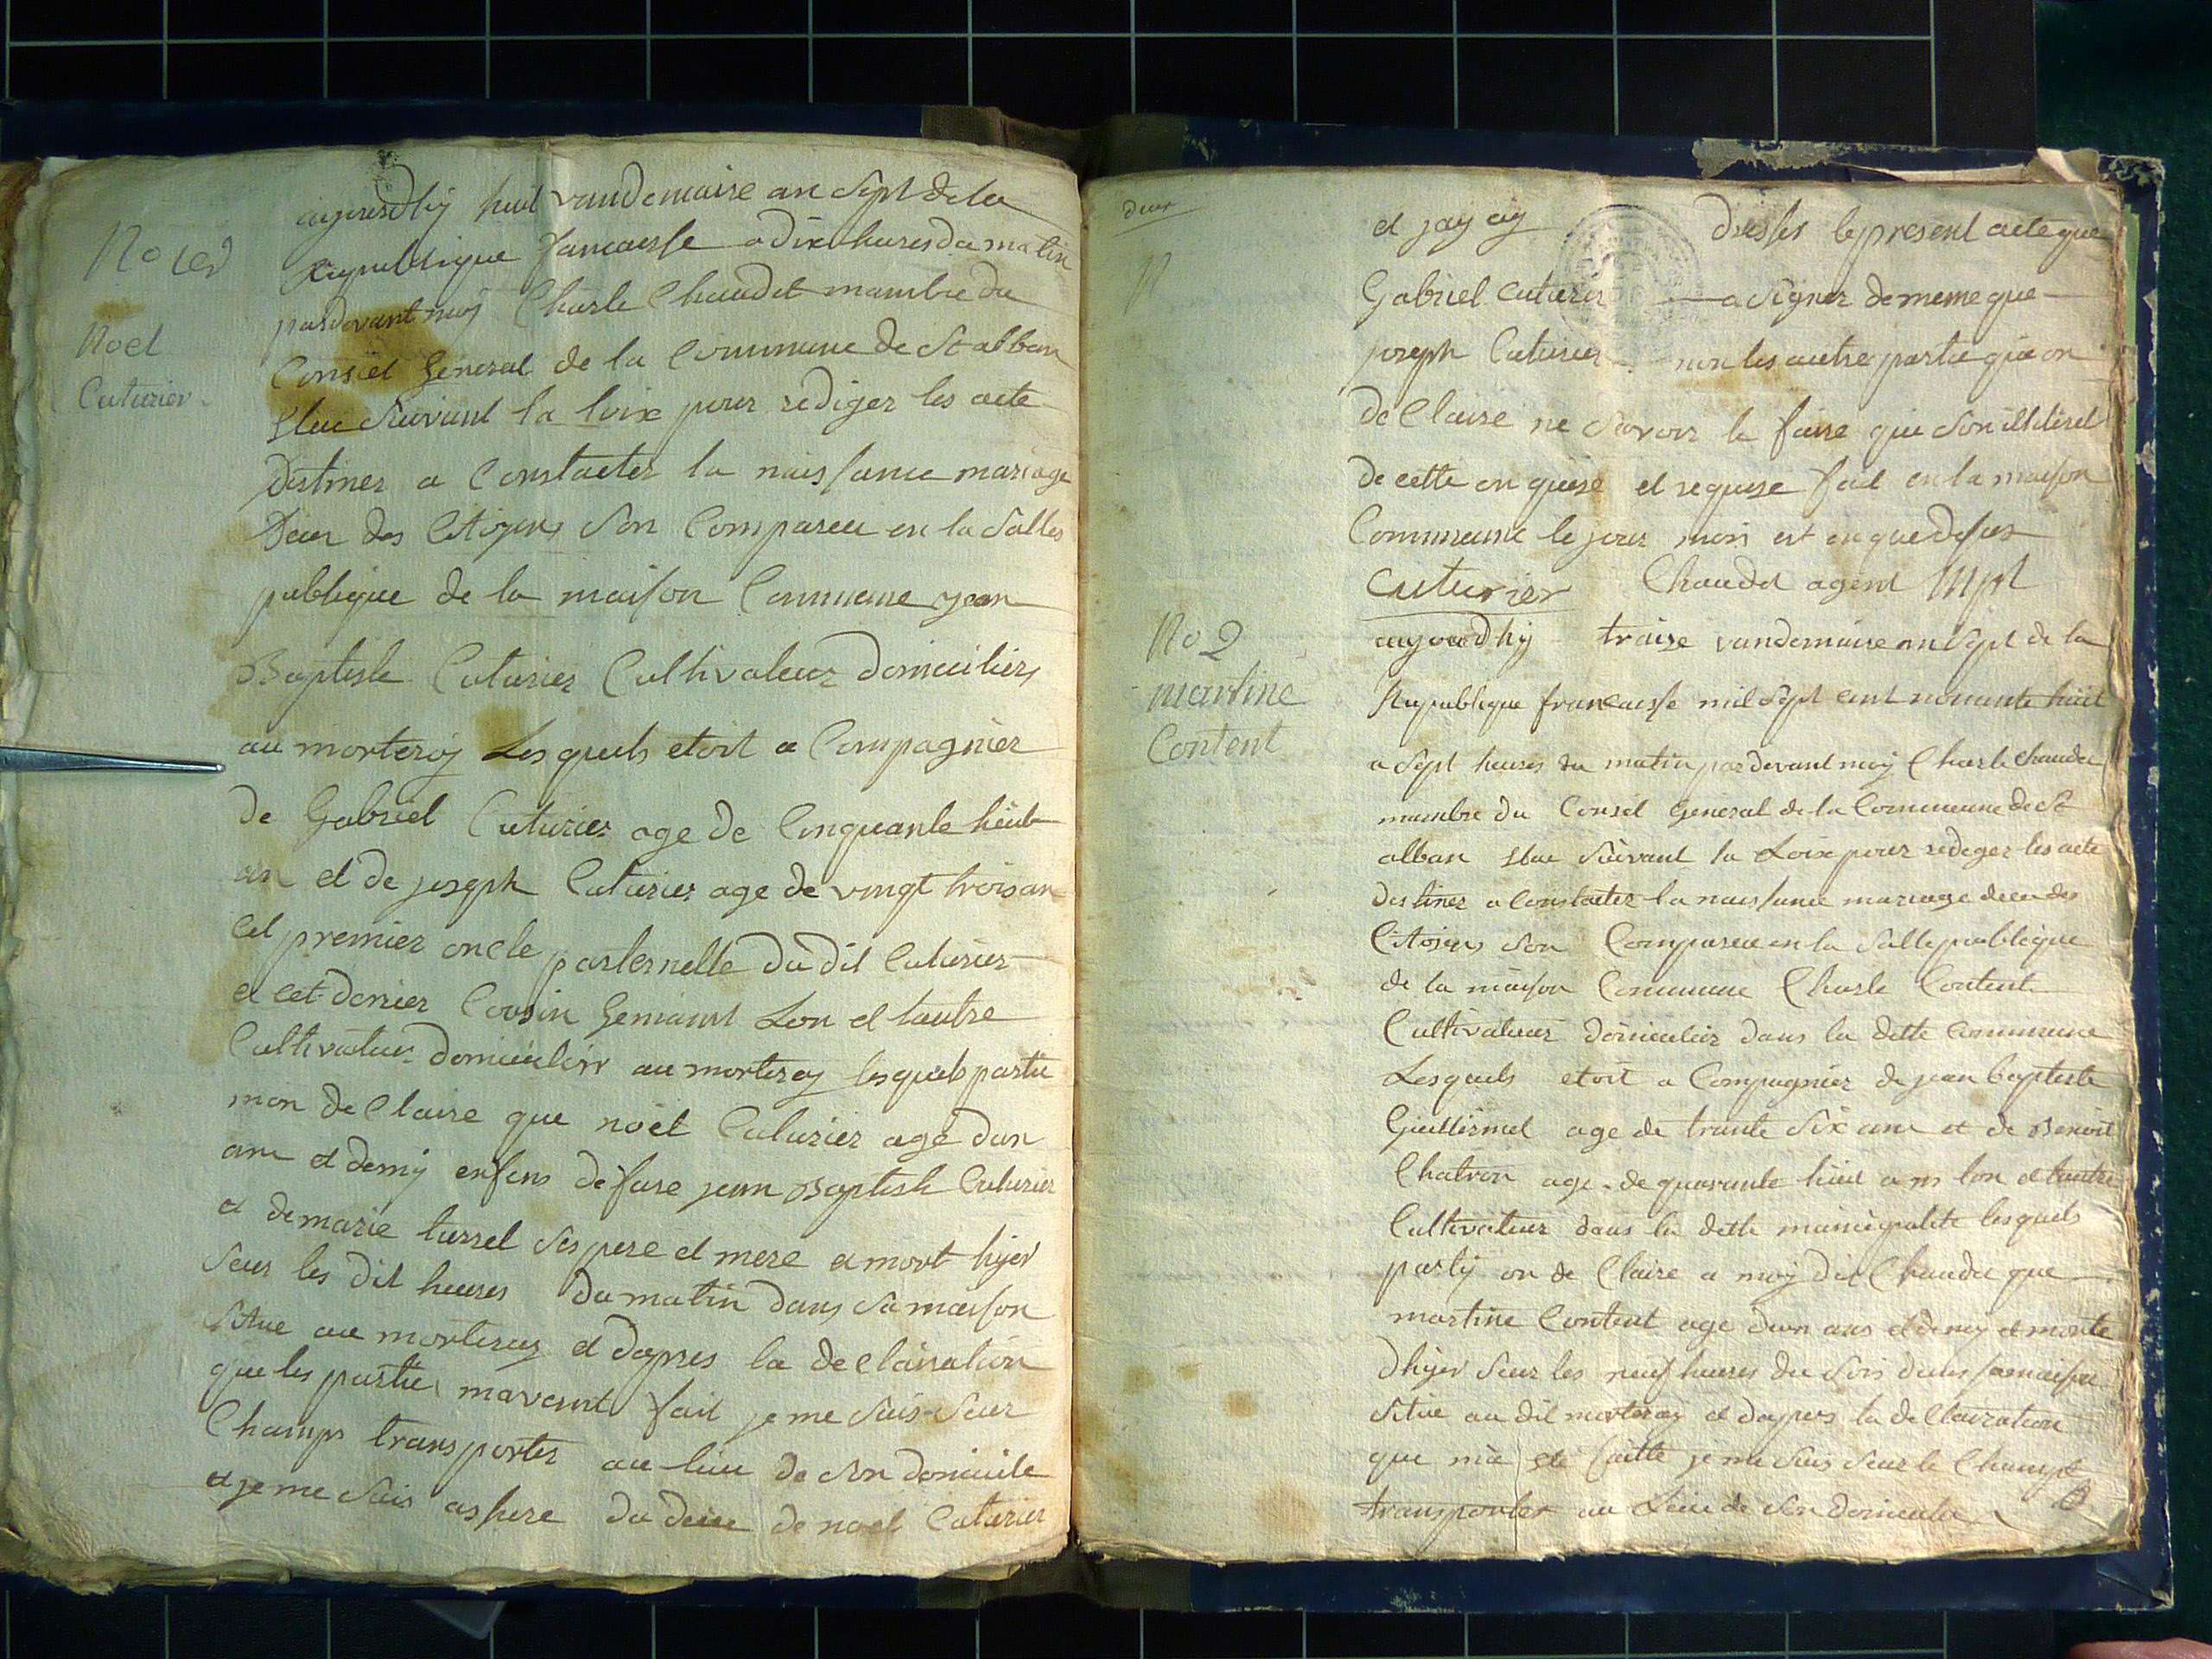 No 1er
Noel
Cuturier
aujourdhy huit vandemaire an Sept de la
Republique francaisse a dix heures du matin
pardevant moy Charle Chaudet mambre du
Conseil General de la Commune de St alban
Elue Suivant la loix pour rediger les acte
Destiner a Constacter la naissance mariage
Deces des Citoyens Son Compareu en la Salles
publique de la maison Commune jean
Baptiste Cuturier Cultivateur Domicilier
au morteroy Lesquels etoit a Compagnier
de Gabriel Cuturier age de Cinquante heuit
an et de joseph Cuturier age de vingt trois an
Cet premier oncle parternelle du dit Cuturier
et cet dernier Cousin Germaint Lon et lautre
Cultivateur domicilier au morteroy lesquels partie
mon de Claire que noël Cuturier age dun
ans et demy enfans de fue jean Baptiste Cuturier
et de marie turrel Ses pere et mere et mort hyer
Seur les dit heures du matin dans Sa maison
Situe au morteroy et dapres la declairation
que les partie mavount fait je me Suis Seur
Champs transporter au lieu de Son domicile
et je me Suis assure du deces de noel Cuturier
deux
et jay ay dresser le present acte que
Gabriel Cuturier a Signer de meme que
joseph Cuturier non les autre partie qui on
de Claire ne Savoir le faire qui Son illiteret
de cette on quise et requise fait en la maison
Commune le jour mois et en que desus
Cuturier Chaudet agent
No 2
martine
Content
aujourdhy traize vandemaire an Sept de la
Republique francaisse mil Sept cent nonante huit
a Sept heures du matin pardevant moy Charle Chaudet
mambre du Conseil General de la Commune de St
alban Elue Suivant la Loix pour rediger les acte
destiner a Constacter la naissance mariage deces des
Citoyens Son Compareu en la Salle publique
de la maison Commune Charle Content
Cultivateur domicilier dans la ditte Commune
Lesquels etoit a Compagnier de jean baptiste
Guillermet age de trante Six ans et de Benoit
Chatron age de quarante huit ans lon et lautre
Cultivateur dans la ditte municipalite lesquels
party on de Claire a moy dit Chaudet que
martine Content age dun ans et demy et morte
dhyer Seur les neuf heures du Soir dans Sa maison
Situe au dit morteroy et dapres la declairation
que ma ete faitte je me Suis Seur le Champt
transporter au Lieu de Son domicile